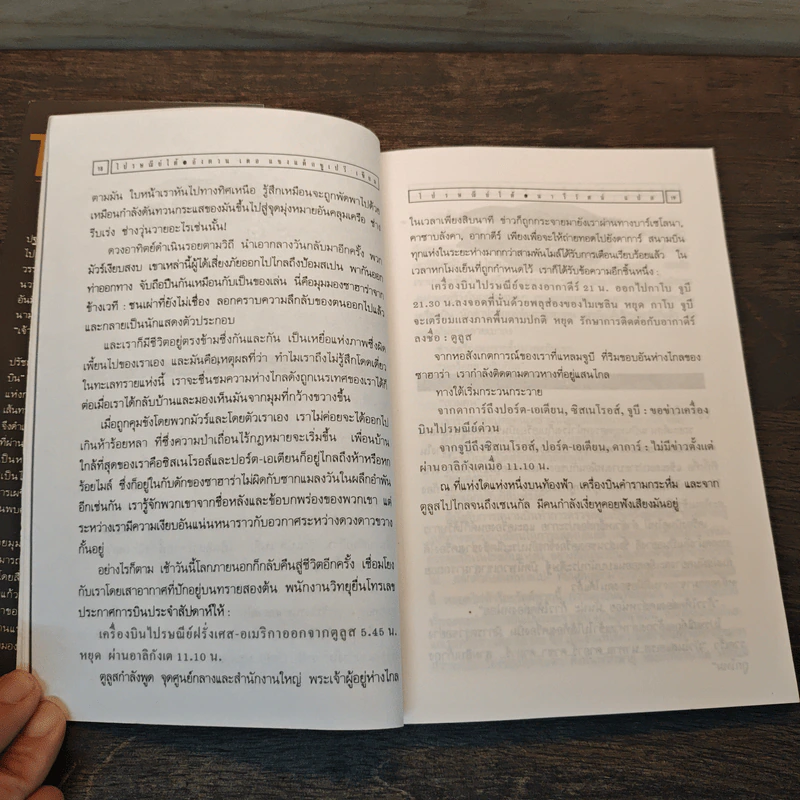 ไปรษณีย์ใต้
ตามมัน ใบหน้าเราหันไปทางทิศเหนือ รู้สึกเหมือนจะถูกพัดพาไปด้วย
เหมือนกำลังต้นทวนกระแสของมันขึ้นไปสู่จุดมุ่งหมายอันคลุมเครือ ช่าง
รีบเร่ง ช่างวุ่นวายอะไรเช่นนั้น!
ดวงอาทิตย์ดำเนินรอยตามวิถี นำเอากลางวันกลับมาอีกครั้ง พวก
มัวร์เงียบสงบ เขาเหล่านี้ผู้ได้เสี่ยงภัยออกไปไกลถึงป้อมสเปน พากันออก
ท่าออกทาง จับถือปืนกันเหมือนกับเป็นของเล่น นี่คือมุมมองซาฮาร่าจาก
ข้างเวที : ชนเผ่าที่ยังไม่เชื่อง ลอกคราบความลึกลับของตนออกไปแล้ว
และกลายเป็นนักแสดงตัวประกอบ
และเราก็มีชีวิตอยู่ตรงข้ามซึ่งกันและกัน เป็นเหยื่อแห่งภาพซึ่งผิด
เพี้ยนไปของเราเอง และมันคือเหตุผลที่ว่า ทำไมเราถึงไม่รู้สึกโดดเดี่ยว
ในทะเลทรายแห่งนี้ เราจะชื่นชมความห่างไกลดังถูกเนรเทศของเราได้ก็
ต่อเมื่อเราได้กลับบ้านและมองเห็นมันจากมุมที่กว้างขวางขึ้น
เมื่อถูกคุมขังโดยพวกมัวร์และโดยตัวเราเอง เราไม่ค่อยจะได้ออกไป
เกินห้าร้อยหลา ที่ซึ่งความป่าเถื่อนไร้กฎหมายจะเริ่มขึ้น เพื่อนบ้าน
ใกล้ที่สุดของเราคือซิสเนโรสและปอร์ต-เอเตียนก็อยู่ไกลถึงห้าหรือหก
ร้อยไมล์ ซึ่งก็อยู่ในกับดักของซาฮาร่าไม่ผิดกับซากแมลงวันในผลึกอำพัน
อีกเช่นกัน เรารู้จักพวกเขาจากชื่อหลังและข้อบกพร่องของพวกเขา แต่
ระหว่างเรามีความเงียบอันแน่นหนาราวกับอวกาศระหว่างดวงดาวขวาง
กั้นอยู่
อย่างไรก็ตาม เช้าวันนี้โลกภายนอกก็กลับคืนสู่ชีวิตอีกครั้ง เชื่อมโยง
กับเราโดยเสาอากาศที่ปักอยู่บนทรายสองต้น พนักงานวิทยุยื่นโทรเลข
ประกาศการบินประจำสัปดาห์ให้ :
เครื่องบินไปรษณีย์ฝรั่งเศส-อเมริกาออกจากตูลูส 5.45 น.
หยุด ผ่านอาลิกังเต 11.10 น.
ตูลูสกำลังพูด จุดศูนย์กลางและสำนักงานใหญ่ พระเจ้าผู้อยู่ห่างไกล
ไปรษณีย์ใต้
ในเวลาเพียงสิบนาที ข่าวก็ถูกกระจายมายังเราผ่านทางบาร์เซโลนา,
คาซาบลังคา, อากาดีร์ เพียงเพื่อจะให้ถ่ายทอดไปยังดาการ์ สนามบิน
ทุกแห่งในระยะห่างมากกว่าสามพันไมล์ได้รับการเตือนเรียบร้อยแล้ว ใน
เวลาหกโมงเย็นที่ถูกกำหนดไว้ เราก็ได้รับข้อความอีกชิ้นหนึ่ง :
เครื่องบินไปรษณีย์จะลงอากาดีร์ 21 น. ออกไปกาโบ จูบี
21.30 น.ลงจอดที่นั่นด้วยพลุส่องของไมเชลิน หยุด กาโบ จูบี
จะเตรียมแสงภาคพื้นตามปกติ หยุด รักษาการติดต่อกับอากาดีร์
ลงชื่อ : ตูลูส
จากหอสังเกตการณ์ของเราที่แหลมจูบี ที่ริมขอบอันห่างไกลของ
ซาฮาร่า เรากำลังติดตามดาวหางที่อยู่แสนไกล
ทางใต้เริ่มกระวนกระวาย
จากดาการ์ถึงปอร์ต-เอเตียน, ซิสเนโรส, จูบี : ขอข่าวเครื่อง
บินไปรษณีย์ด่วน
จากจูบีถึงซิสเนโรส, ปอร์ต-เอเตียน, ดาการ์ : ไม่มีข่าวตั้งแต่
ผ่านอาลิกังเตเมื่อ 11.10 น.
ณ ที่แห่งใดแห่งหนึ่งบนท้องฟ้า เครื่องบินคำรามกระหึ่ม และจาก
ตูลูสไปไกลจนถึงเซเนกัล มีคนกำลังเงี่ยหูคอยฟังเสียงมันอยู่